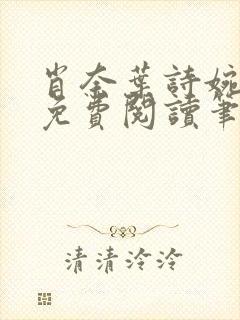 肖奈葉詩婉
免費閱讀筆
清清泠泠